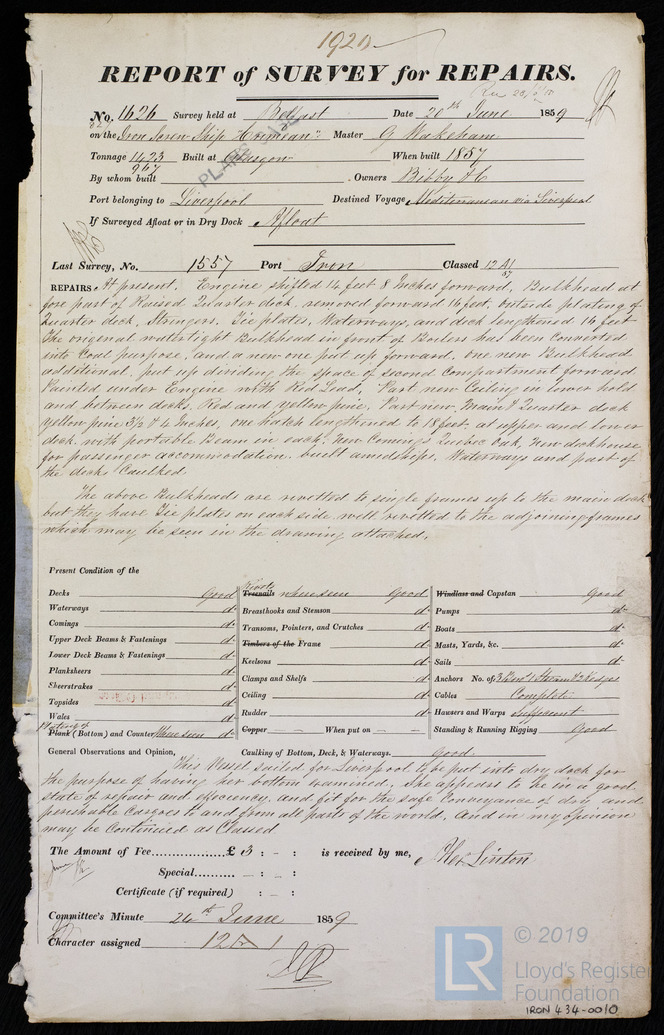 1920
REPORT of SURVEY for REPAIRS.
Rec 20/6/59
No. 1626 Survey held at Belfast Date 20th June 1859
on the Iron Screw Ship Crimean" Master G Wakeham
Tonnage 1423 Built at Glasgow When built 1857
967
By whom built Owners Bibby & C
PLANS
Port belonging to Liverpool Destined Voyage Mediterranean via Liverpool
If Surveyed Afloat or in Dry Dock Afloat
Last Survey, No. 1557 Port Iron Classed 12 A1
57
REPAIRS. At present. Engine shifted 14 feet 8 Inches forward, Bulkhead at
fore part of Raised Quarter deck, removed forward 16 feet, outside plating of
Quarter deck, Stringers, Tie plates, Waterways, and deck lengthened 16 feet
The original watertight Bulkhead in front of Boilers has been converted
into Coal purpose, and a new one put up forward, one new Bulkhead
additional, put up dividing the space of second compartment forward
Painted under Engine with Red Lead, Part new Ceiling in lower hold
and between decks, Red and yellow pine. Part new Main & Quarter deck
yellow pine 3½ & 4 Inches, one hatch lengthened to 18 feet, at upper and lower
deck, with portable Beam in each, New Comings Quebec Oak, New deck house
for passenger accommodation, built amidships, Waterways and part of
the decks Caulked.
The above Bulkheads are rivotted to single frames up to the main deck
but they have Tie plates on each side well rivotted to the adjoining frames
which may be seen in the drawing attached.
Present Condition of the
Decks Good
Waterways do
Comings do
Upper Deck Beams & Fastenings do
Lower Deck Beams & Fastenings do
Planksheers do
Sheerstrakes do
Topsides do
Wales do
Plating &
Plank (Bottom) and Counter Where seen do
Rivets
Treenails where seen Good
Breasthooks and Stemson do
Transoms, Pointers, and Crutches do
Timbers of the Frame do
Keelsons do
Clamps and Shelfs do
Ceiling do
Rudder do
Copper — — When put on — —
Windlass and Capstan Good
Pumps do
Boats do
Masts, Yards, &c. do
Sails do
Anchors No. of, 3 Bow 1 Stream & 2 Kedges
Cables Complete
Hawsers and Warps Sufficient
Standing & Running Rigging Good
General Observations and Opinion, Caulking of Bottom, Deck, & Waterways. Good
This Vessel sailed for Liverpool to be put into dry dock for
the purpose of having her bottom examined. She appears to be in a good
state of repair and efficiency, and fit for the safe Conveyance of dry and
perishable Cargoes to and from all parts of the world. And in my opinion
may be Continued as Classed
The Amount of Fee................£ 3 : - : is received by me, Alexr Linton
Special........... : - :
Certificate (if required) : - :
Committee's Minute 24th June 1859
Character assigned 12 A 1
LR © 2019
Lloyd's Register
Foundation
IRON 434-0010